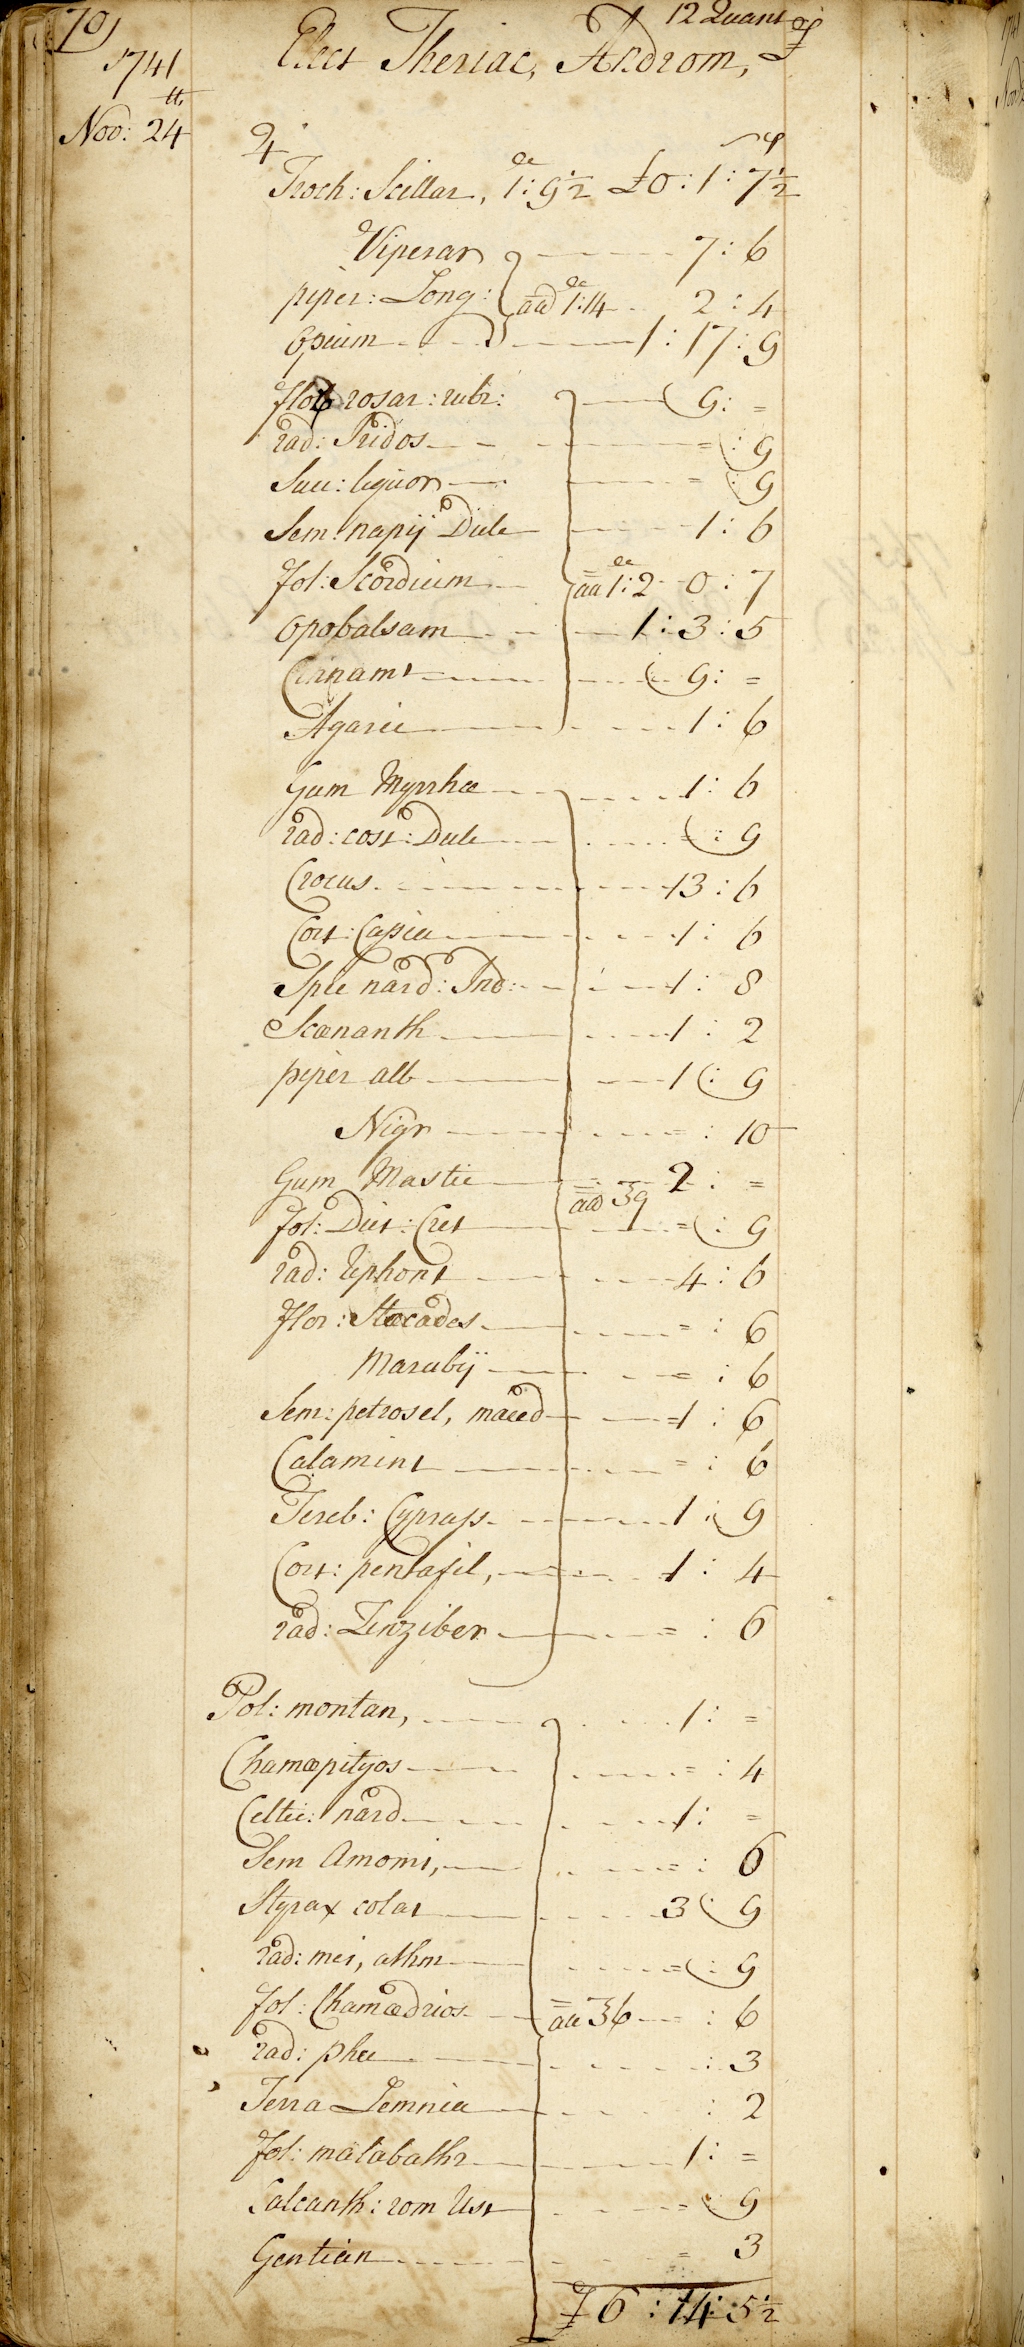 70)
12 Quant
1741
Elect Theriac, Androm,
Nov: 24th
Troch: Scillar, 1:9½ £0:1:7½
Viperar 7:6
piper: Long: aa 1:14 2:4
opium 1:17:9
flor rosar: rubr: 9: =
rad: Iridos = : 9
Succ: liquor = : 9
Sem: napij Dulc 1:6
fol: Scordium aa 1:2 0:7
opobalsam 1:3:5
Cinnam 9: =
Agaric 1:6
Gum Myrrhæ 1:6
rad: cost: Dulc = : 9
Crocus 13:6
Cort: Cassiæ 1:6
Spic nard: Ind: 1:8
Scœnanth 1:2
piper alb 1:9
Nigr = : 10
Gum Mastic 2: =
aa ʒ9
fol: Dict: Cret = : 9
rad: rhpont 4:6
flor: Stœcados = : 6
Marubij = : 6
Sem: petrosel, maced 1:6
Calamint = : 6
Tereb: Cyprass 1:9
Cort: pentafil, 1:4
rad: Zinziber = : 6
Pol: montan, 1: =
Chamæpityos = : 4
Celtic: nard 1: =
Sem Amomi, = : 6
Styrax colat 3:9
rad: mei, athm = : 9
fol: Chamædrios aa ʒ6 : 6
rad: phu : 3
Terra Lemnia : 2
fol: malabathr 1: =
Calcanth: rom Ust = : 9
Gentian = 3
£6:14:5½